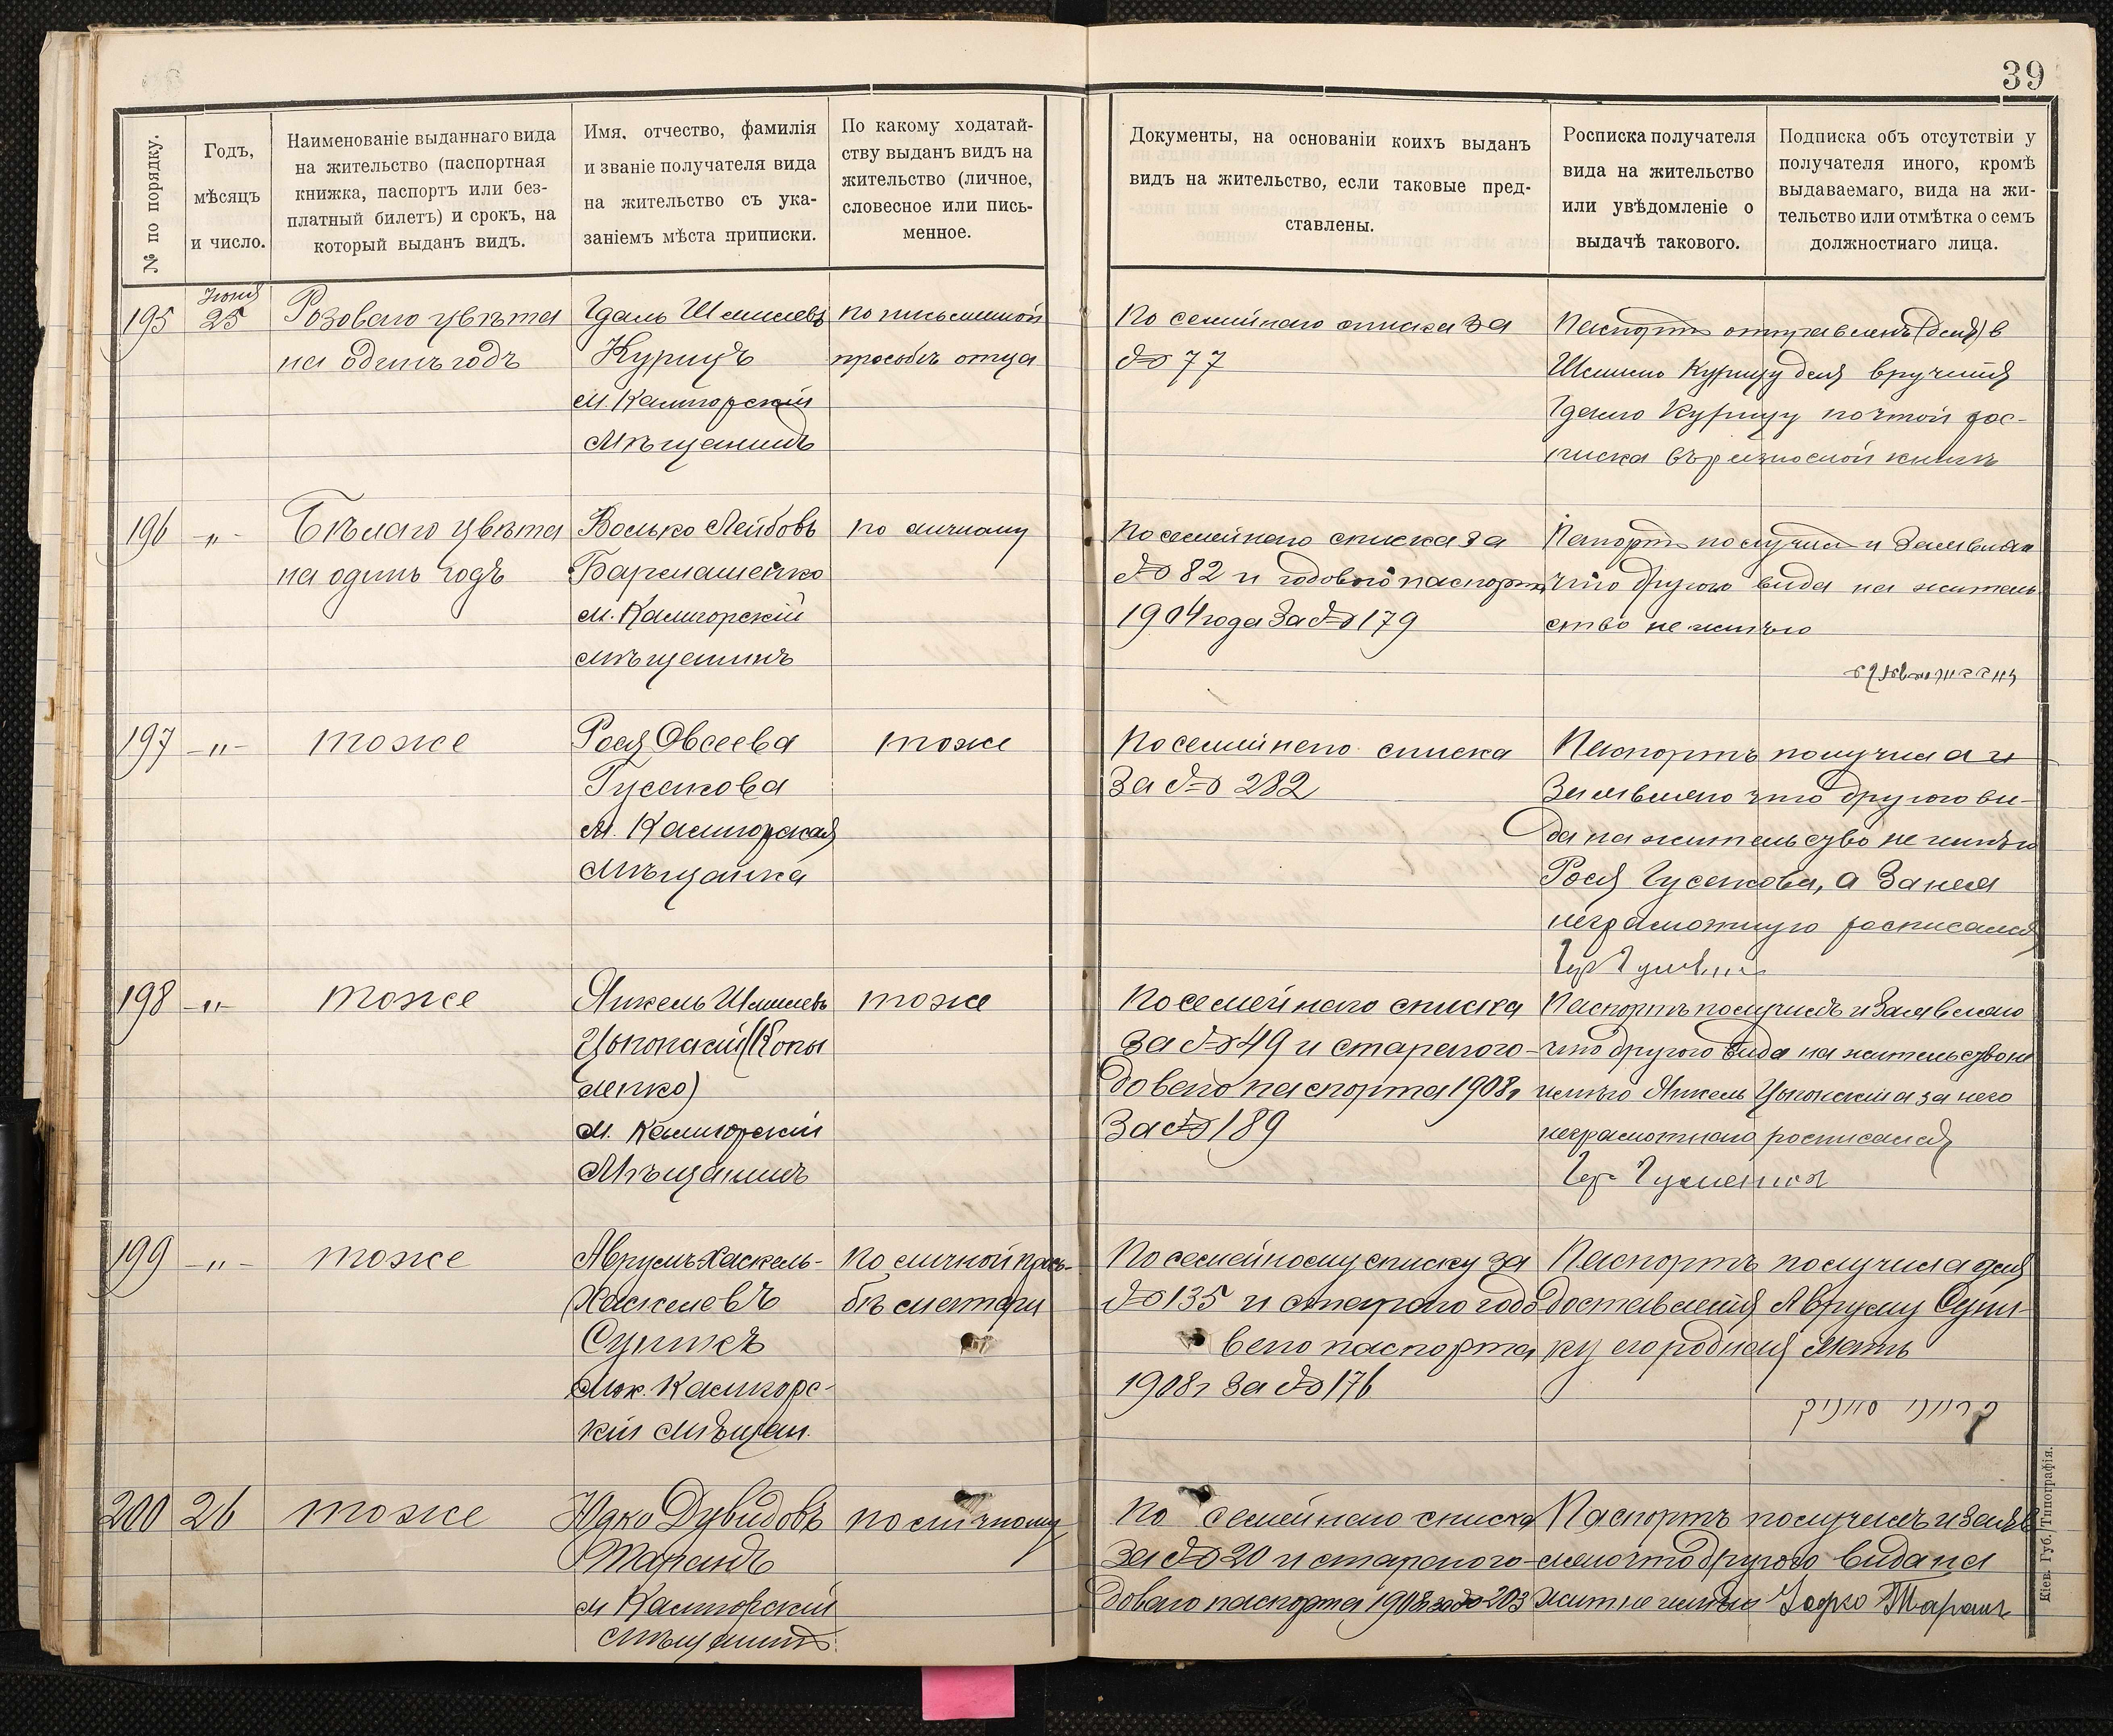 39
№ по порядку.
Годъ,
мѣсяцъ
и число.
Наименованіе выданнаго вида
на жительство (паспортная
книжка, паспортъ или без-
платный билетъ) и срокъ, на
который выданъ видъ.
Имя, отчество, фамилія
и званіе получателя вида
на жительство съ ука-
заніемъ мѣста приписки.
По какому ходатай-
ству выданъ видъ на
жительство (личное,
словесное или пись-
менное.
Документы, на основаніи коихъ выданъ
видъ на жительство, если таковые пред-
ставлены.
Росписка получателя
вида на жительство
или увѣдомленіе о
выдачѣ такового.
Подписка объ отсутствіи у
получателя иного, кромѣ
выдаваемаго, вида на жи-
тельство или отмѣтка о семъ
должностнаго лица.
195
Іюня
25
Розоваго цвѣта
на одинъ годъ
Гдаль Шмилевъ
Курицъ
м. Калигорскій
мѣщанинъ
по письменной
просьбѣ отца
По семейнаго списка за
№ 77
Паспортъ отправленъ в
Шмилю Курицу для врученія
Гдалю Курицу почтой рос-
писка въ разносной книгѣ
196
-„-
Бѣлаго цвѣта
на одинъ годъ
Волько Лейбовъ
Бармашенко
м. Калигорскій
мѣщанинъ
по личному
По семейнаго списка за
№ 82 и годового паспорта
1904 года за № 179
Паспортъ получилъ и заявляю
что другого вида на житель
ство не имѣю
197
-„-
тоже
Рося Овсеева
Гусакова
м. Калигорская
мѣщанка
тоже
По семейнаго списка
за № 282
Паспортъ получила и
заявляю что другого ви-
да на жительство не имѣю
Рося Гусакова, а за нея
неграмотную росписался
198
-„-
тоже
Янкель Шмилевъ
м. Калигорскій
мѣщанинъ
тоже
По семейнаго списка
за № 49 и стараго го-
доваго паспорта 1908 г
за № 189
Паспортъ получилъ и заявляю
что другого вида на жительство не
имѣю Янкель а за него
неграмотнаго росписался
199
-„-
тоже
Аврумъ Хаскель-
Хаскелевъ
Супикъ
Мѣ. Калигорс-
кій мѣщан.
По личной прось-
бѣ матери
По семейному списку за
№ 135 и стараго годо
ваго паспорта
1908 г за № 176
Паспортъ получила для
доставленія Авруму Супи-
ку его родная мать
200
26
тоже
Юдко Дувидовъ
Таранъ
м Калигорскій
мѣщанинъ
по личному
По семейнаго списка
за № 20 и стараго го-
доваго паспорта 1908 за № 203
Паспортъ получилъ и заяв
ляю что другого вида на
жит не имѣю Таранъ
Кіев. Губ. Типографія.